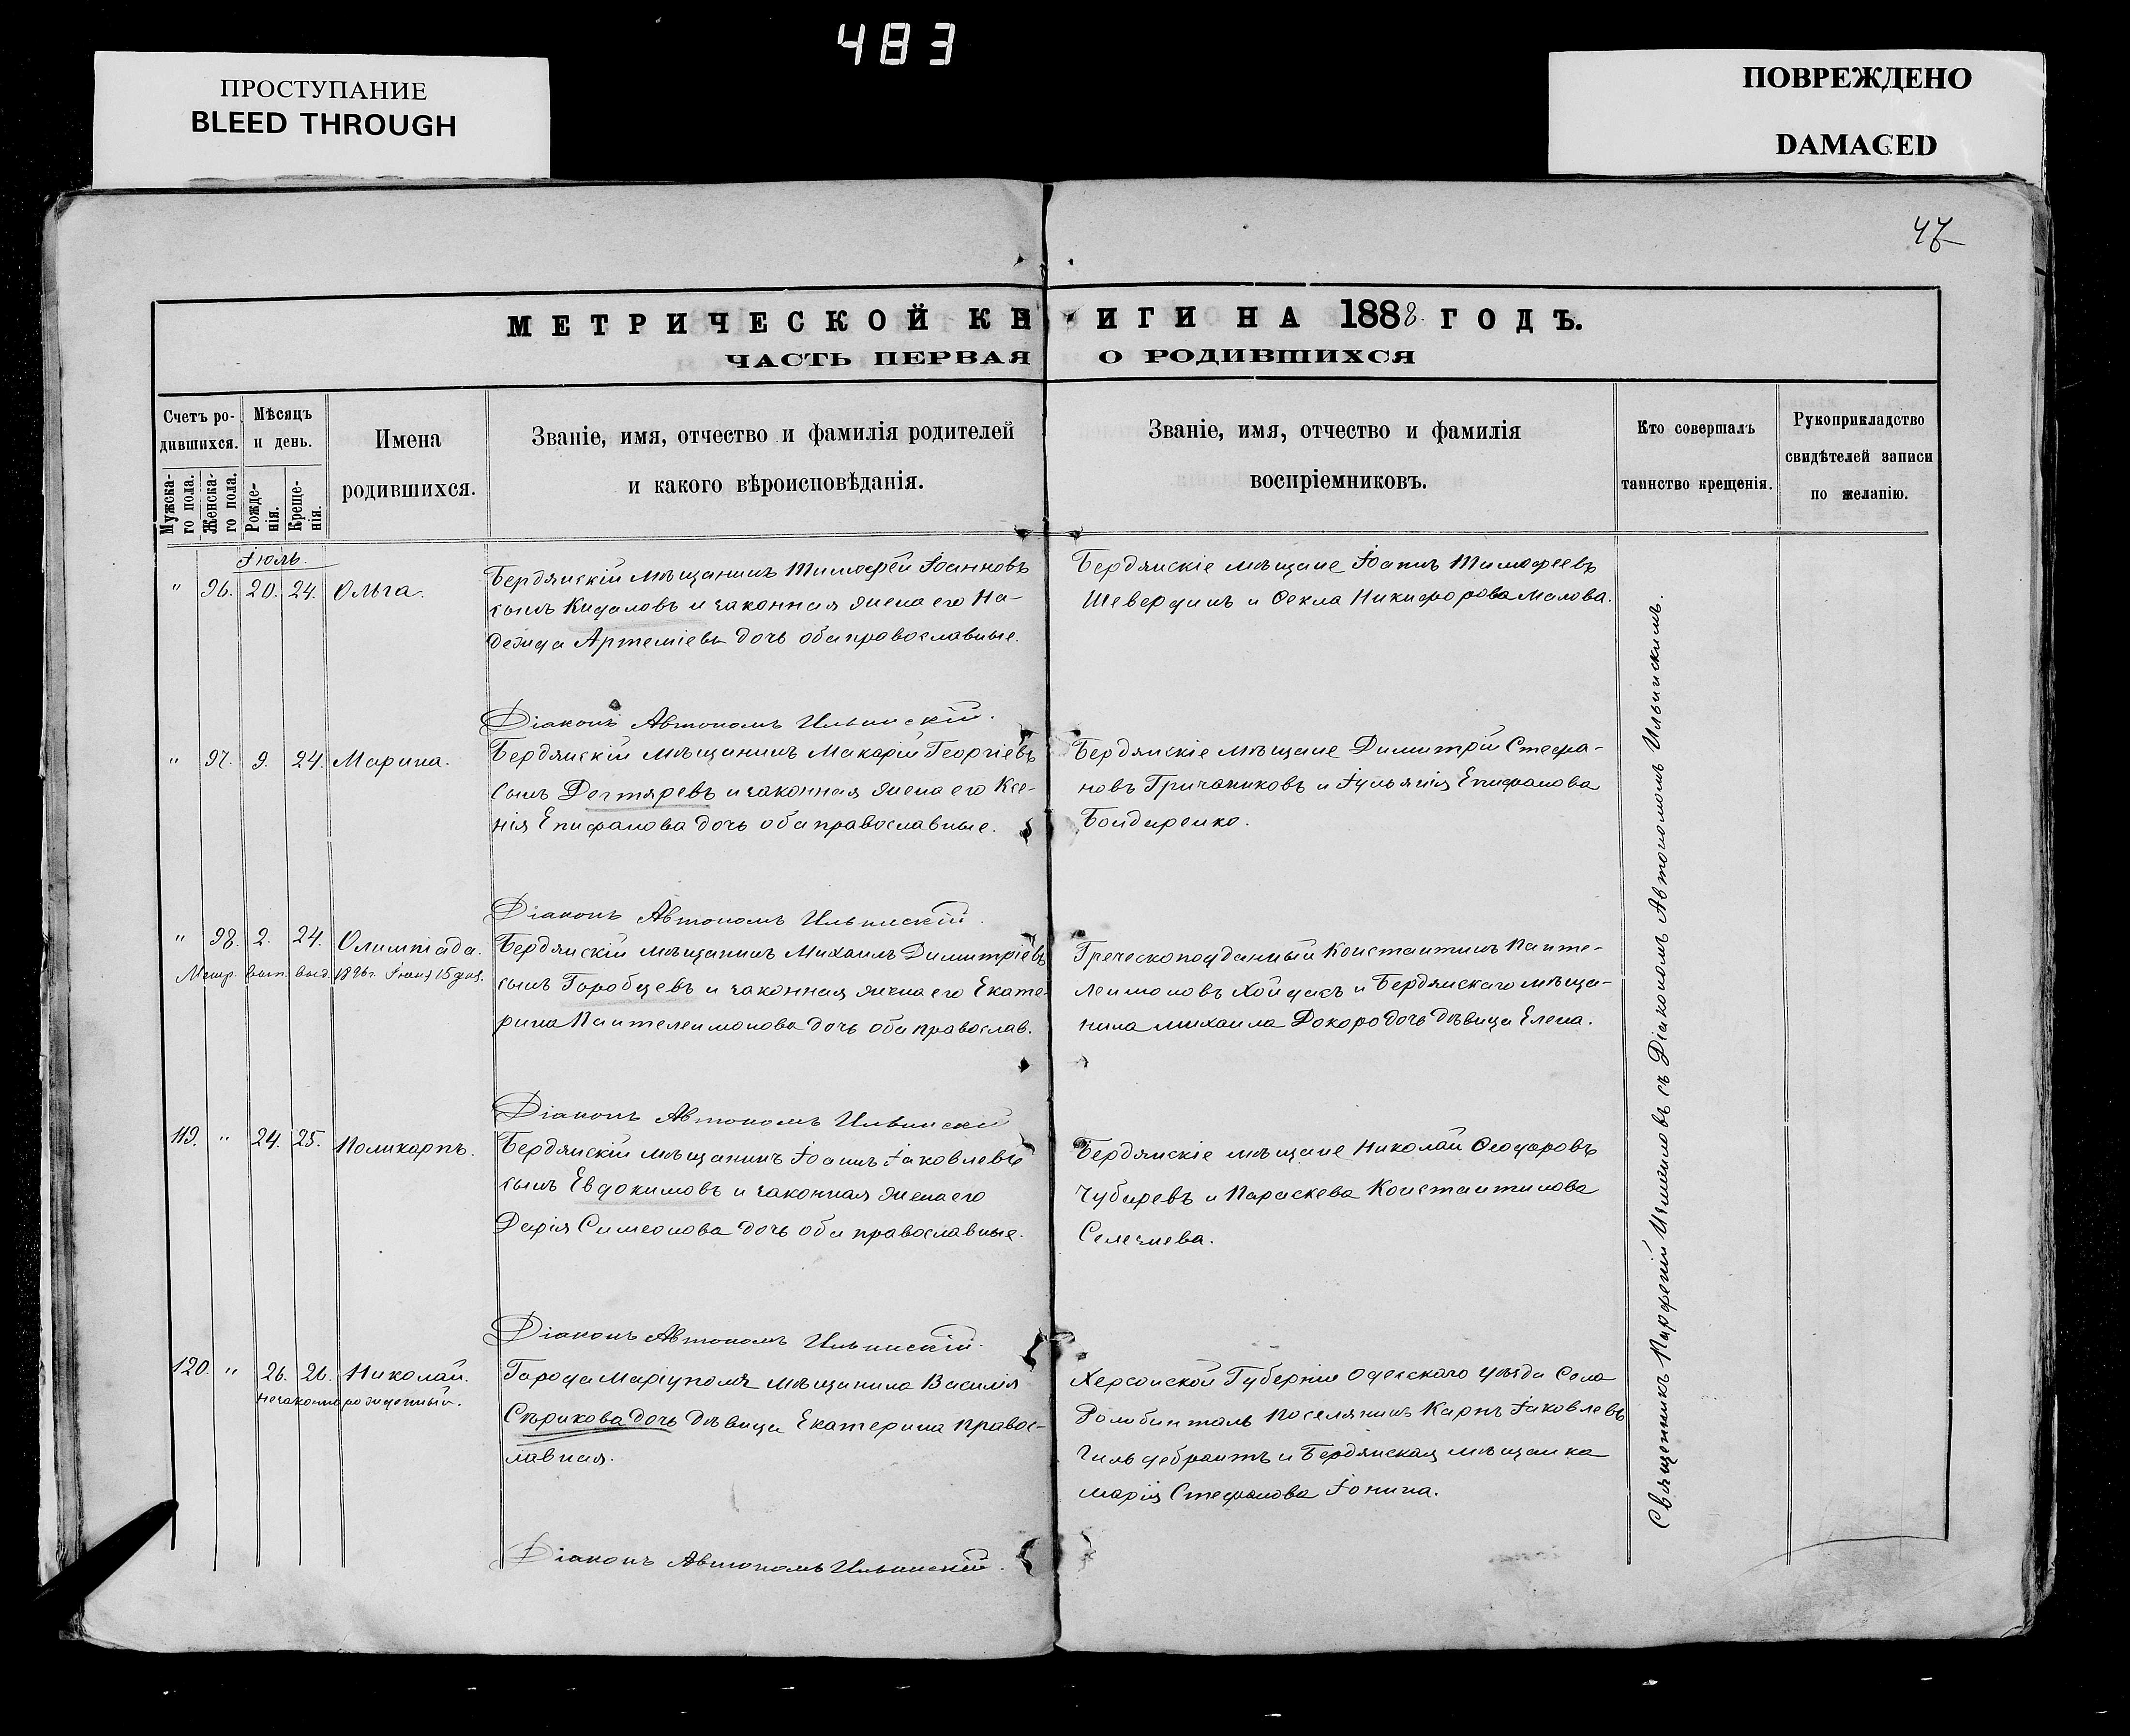 483
ПРОСТУПАНИЕ
BLEED THROUGH
ПОВРЕЖДЕНО
DAMAGED
47
МЕТРИЧЕСКОЙ КНИГИ НА 1888 ГОДЪ.
ЧАСТЬ ПЕРВАЯ О РОДИВШИХСЯ
Счетъ ро-
дившихся.
Мужска-
го пола.
Женска-
го пола.
Мѣсяцъ
и день.
Рожде-
нія.
Креще-
нія.
Имена
родившихся.
Званіе, имя, отчество и фамилія родителей
и какого вѣроисповѣданія.
Званіе, имя, отчество и фамилія
воспріемниковъ.
Кто совершалъ
таинство крещенія.
Рукоприкладство
свидѣтелей записи
по желанію.
Іюль.
" 96. 20. 24. Ольга.
Бердянскій мѣщанинъ Тимофей Іоанновъ
сынъ Кидаловъ и законная жена его На-
дежда Артеміева дочь оба православные.
Діаконъ Автономъ Ильинскій.
Бердянскіе мѣщане Іоаннъ Тимофеевъ
Шевердинъ и Ѳекла Никифорова Малова.
" 97. 9. 24. Марина.
Бердянскій мѣщанинъ Макарій Георгіевъ
сынъ Дегтяревъ и законная жена его Ксе-
нія Епифанова дочь оба православные.
Діаконъ Автономъ Ильинскій.
Бердянскіе мѣщане Димитрій Стефа-
новъ Гричаниковъ и Іуліянія Епифанова
Бондаренко.
" 98. 2. 24. Олимпіада.
Метр. вып. выд. 1896 г. Іюня 15 дня.
Бердянскій мѣщанинъ Михаилъ Димитріевъ
сынъ Горобцевъ и законная жена его Екате-
рина Пантелеимонова дочь оба православ.
Діаконъ Автономъ Ильинскій
Греческоподданный Константинъ Панте-
леимоновъ Хойдасъ и Бердянскаго мѣща-
нина Михаила Докоро дочь дѣвица Елена.
119. " 24. 25. Поликарпъ.
Бердянскій мѣщанинъ Іоаннъ Іаковлевъ
сынъ Евдокимовъ и законная жена его
Дарія Симеонова дочь оба православные.
Діаконъ Автономъ Ильинскій.
Бердянскіе мѣщане Николай Ѳеодоровъ
Чубаревъ и Параскева Константинова
Селезнева.
120. " 26. 26. Николай.
незаконнорожденный.
Города Маріуполя мѣщанина Василія
Сѣрикова дочь дѣвица Екатерина правос-
лавная.
Діаконъ Автономъ Ильинскій.
Херсонской Губерніи Одесского уѣзда Села
поселянинъ Карпъ Іаковлевъ
Гильдебрантъ и Бердянская мѣщанка
Марія Стефанова Іонина.
Священникъ Парфеній съ Діакономъ Автономомъ Ильинскимъ.